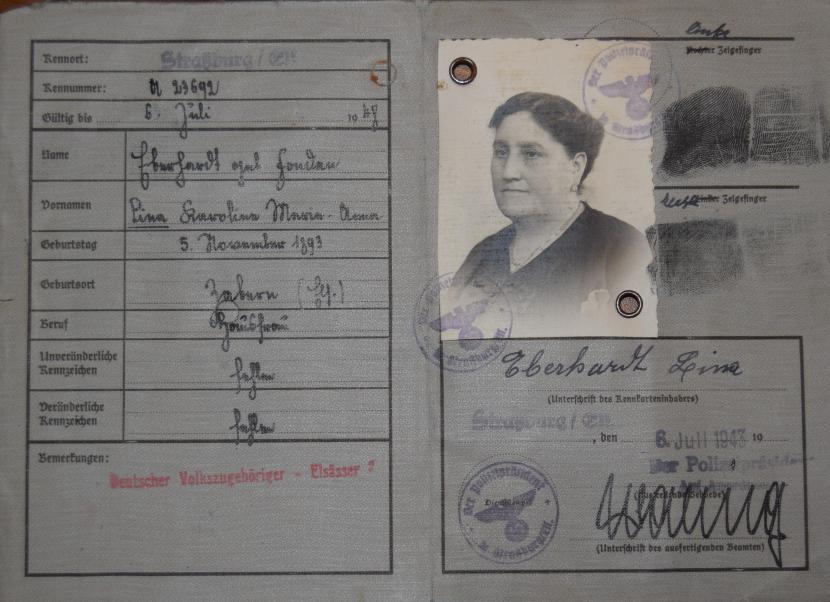 Kennort: Straßburg / Els.
Kennummer: A 23692
Gültig bis 6. Juli 1948
Name Eberhardt geb.
Vornamen Lina Karolina Maria - Anna
Geburtstag 5. November 1893
Geburtsort Zabern (Els.)
Beruf Hausfrau
Unveränderliche
Kennzeichen fehlen
Veränderliche
Kennzeichen fehlen
Bemerkungen:
Deutscher Volkszugehöriger - Elsässer
linke
Rechter Zeigefinger
Der Polizeipräsident
i. Straßburg/Els.
rechte
Linker Zeigefinger
Der Polizeipräsident
i. Straßburg/Els.
Eberhardt Lina
(Unterschrift des Kennkarteninhabers)
Straßburg / Els.
, den 6. Juli 1943 19
Der Polizeipräsident
Der Polizeipräsident
Dienststempel
i. Straßburg/Els.
(Ausfertigende Behörde)
(Unterschrift des ausfertigenden Beamten)